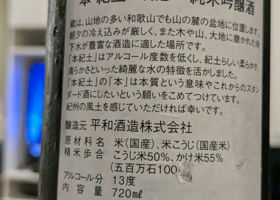 本紀土 純米吟醸酒
蔵は、山地の多い和歌山でも山の麓の盆地に位置します。
朝夕の冷え込みが厳しく、また木や山、大地に磨かれた地
下水が豊富な酒造に適した場所です。
「本紀土」はアルコール度数を低くし、紀土らしい柔らかさ、
清らかさといった綺麗な水の特徴を活かしました。
「本紀土」の「本」は本質という意味やこれからのスタン
ダード酒にしたいという願いをこめてつけています。
紀州の風土を感じていただければ幸いです。
醸造元 平和酒造株式会社
米(国産)、米こうじ(国産米)
精米歩合 こうじ米50%、かけ米55%
(五百万石100
アルコール分 13度
内容量 720ml